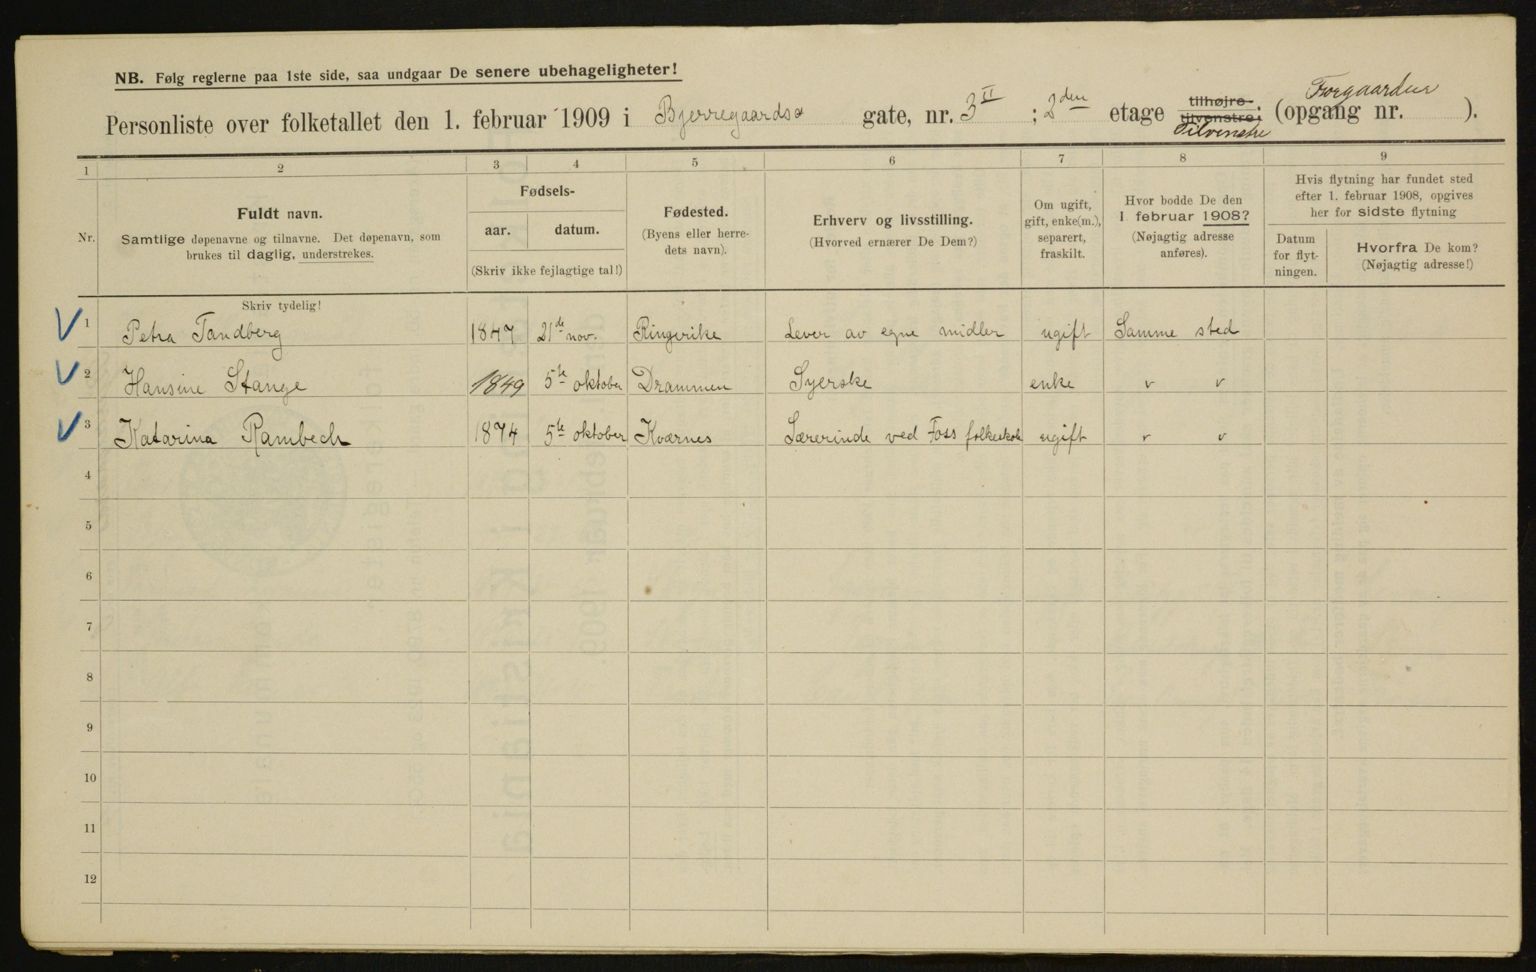 NB. Følg reglerne paa 1ste side, saa undgaar De senere ubehageligheter!
Personliste over folketallet den 1. februar 1909 i Bjerregaards gate, nr. 3 II ; 2den etage tilhøjre. tilvenstre; Tilvenstre (opgang nr. Forgaarden ).
1 2 3 4 5 6 7 8 9
Nr.
Fuldt navn.
Samtlige døpenavne og tilnavne. Det døpenavn, som
brukes til daglig, understrekes.
Fødsels-
aar. datum.
(Skriv ikke fejlagtige tal!)
Fødested.
(Byens eller herre-
dets navn).
Erhverv og livsstilling.
(Hvorved ernærer De Dem?)
Om ugift,
gift, enke(m.),
separert,
fraskilt.
Hvor bodde De den
1 februar 1908?
(Nøjagtig adresse
anføres).
Hvis flytning har fundet sted
efter 1. februar 1908, opgives
her for sidste flytning
Datum
for flyt-
ningen.
Hvorfra De kom?
(Nøjagtig adresse!)
Skriv tydelig!
1 Petra Tandberg 1847 21de nov. Ringerike Lever av egne midler ugift Samme sted
2 Hansine Stange 1849 5te oktober Drammen Syerske enke " "
3 Katarina Rambech 1874 5te oktober Kværnes Lærerinde ved Foss folkeskole ugift " "
4
5
6
7
8
9
10
11
12